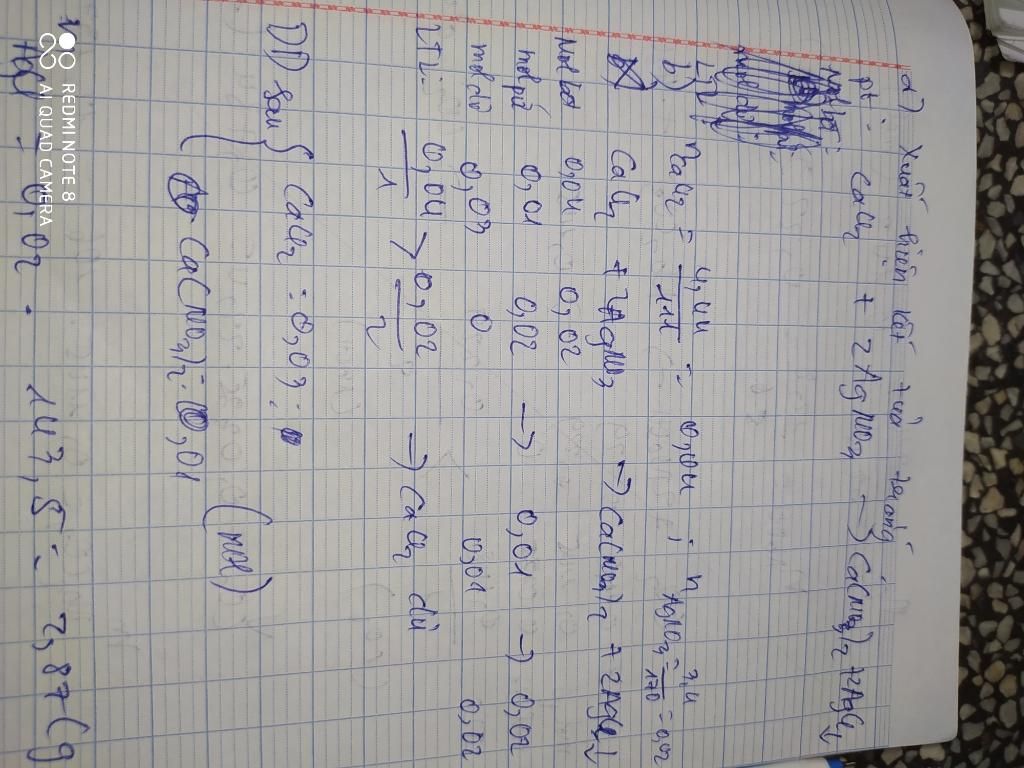 a) Xuất hiện kết tủa trắng
pt: CaCl₂ + 2AgNO₃ → Ca(NO₃)₂ + 2AgCl↓
b) nCaCl₂ = 4,44/111 = 0,04 ; nAgNO₃ = 3,4/170 = 0,02
CaCl₂ + 2AgNO₃ → Ca(NO₃)₂ + 2AgCl↓
Mol bđ 0,04 0,02
mol pứ 0,01 0,02 → 0,01 → 0,02
mol dư 0,03 0 0,01 0,02
LTL: 0,04/1 > 0,02/2 ⇒ CaCl₂ dư
DD sau { CaCl₂ = 0,03 ;
Ca(NO₃)₂ = 0,01 (mol)
AgCl : 0,02 . 143,5 = 2,87 (g
REDMI NOTE 8
AI QUAD CAMERA